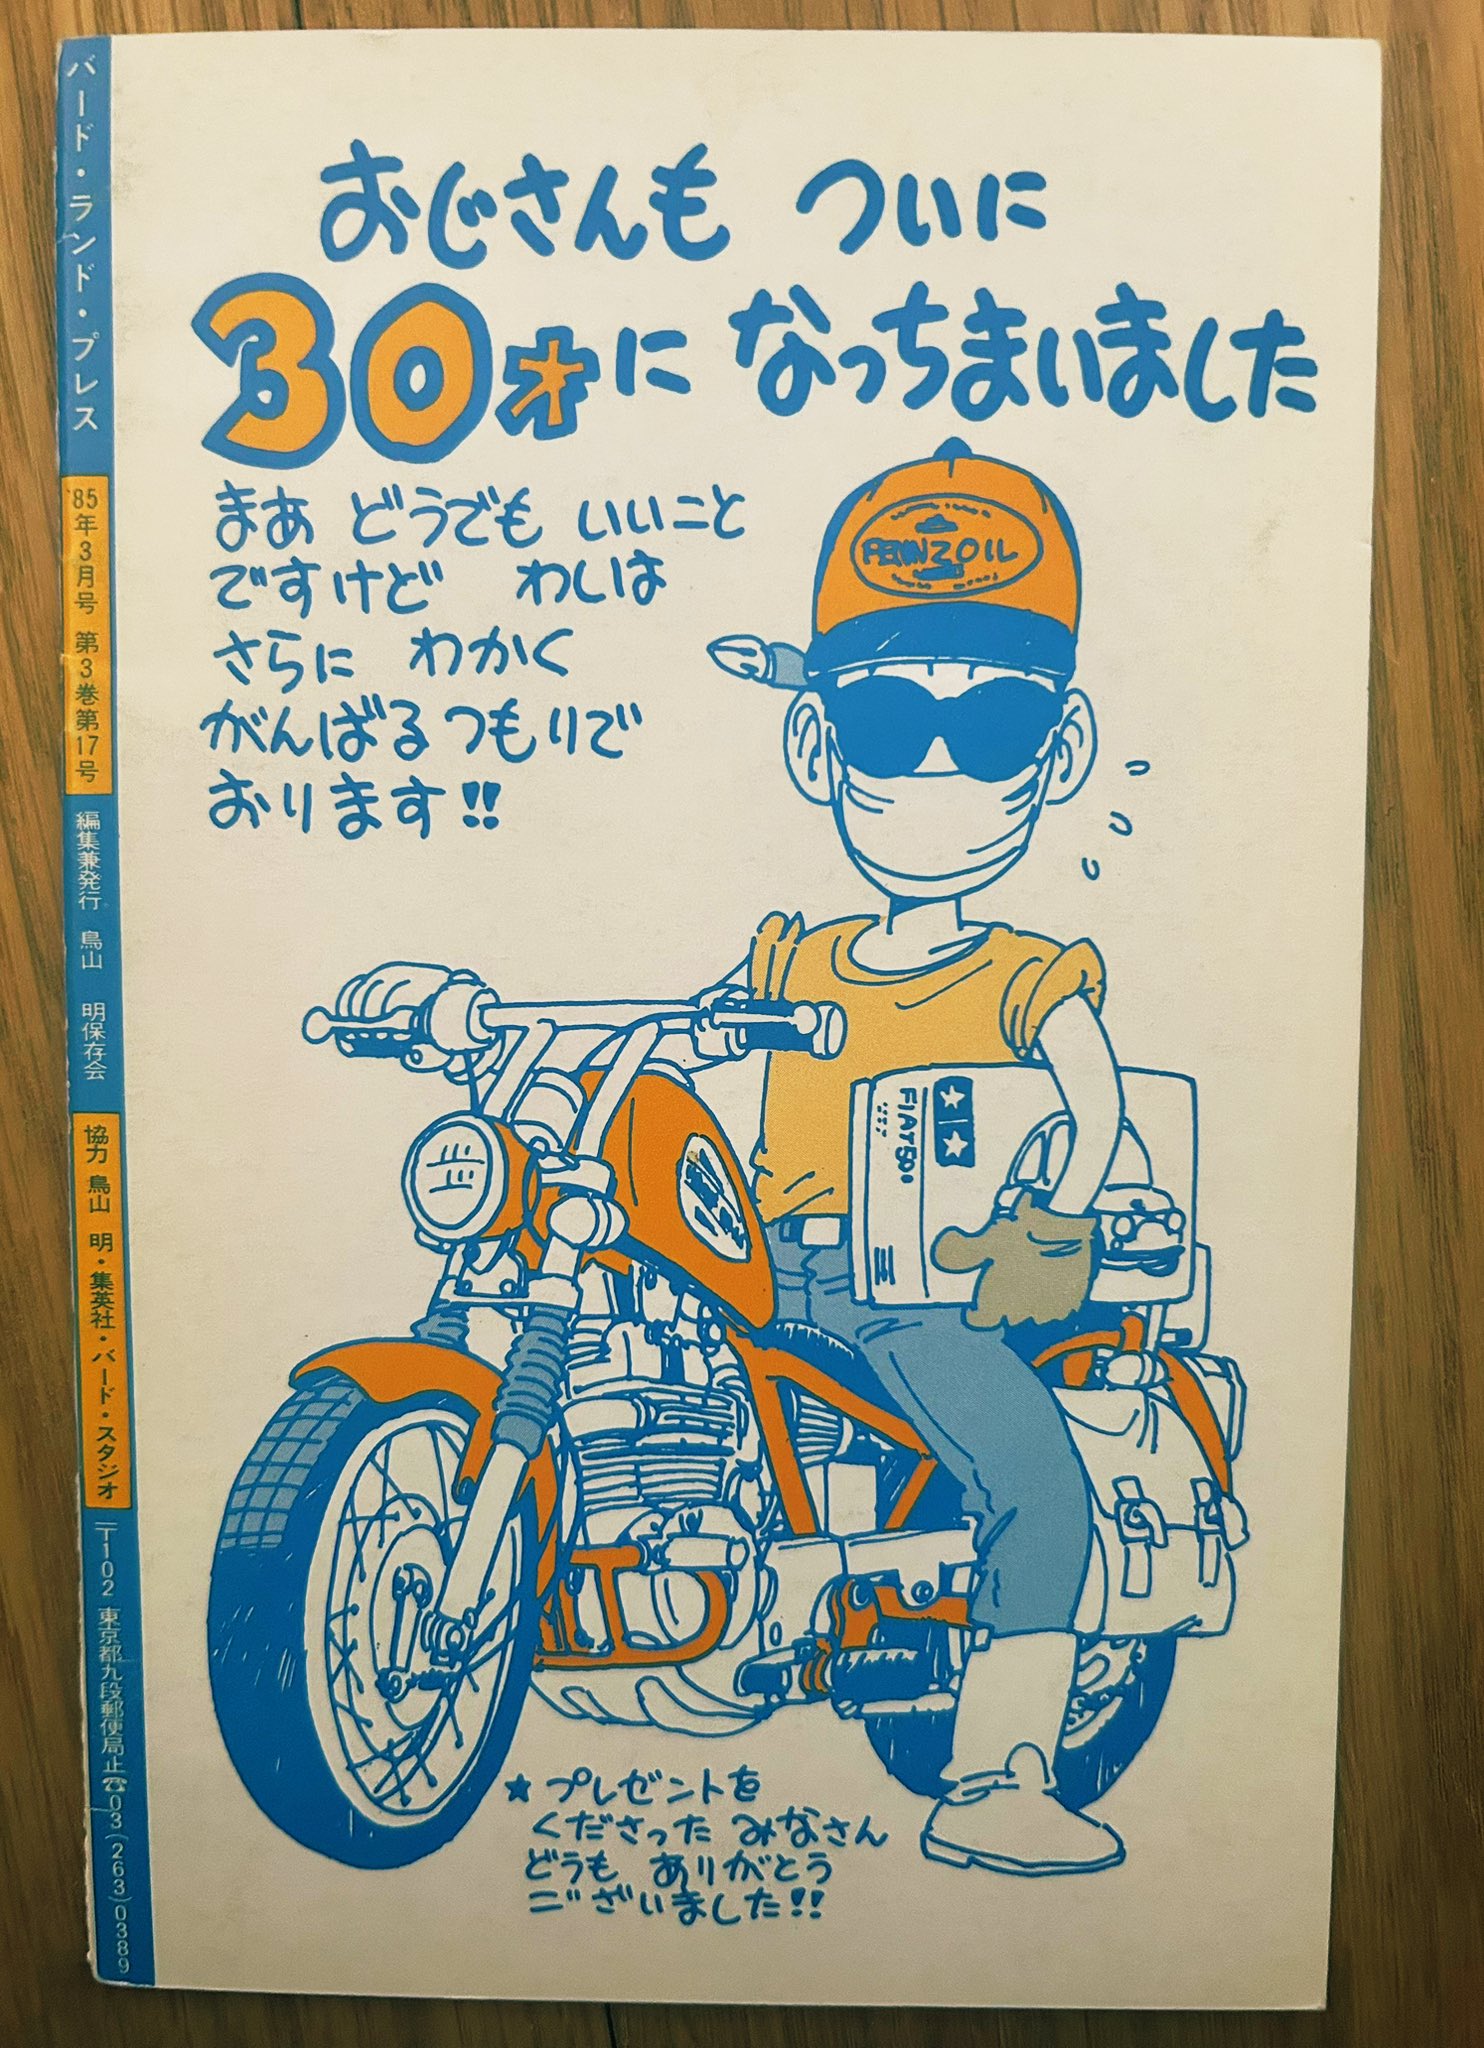 おじさんも ついに
30才に なっちまいました
まあ どうでも いいこと
ですけど わしは
さらに わかく
がんばるつもりで
おります!!
PENNZOIL
FIAT500
★プレゼントを
くださった みなさん
どうも ありがとう
ございました!!
バード・ランド・プレス
'85年3月号 第3巻第17号
編集兼発行 鳥山 明保存会
協力 鳥山 明・集英社・バード・スタジオ
〒102 東京都九段郵便局止☎03(263)0389